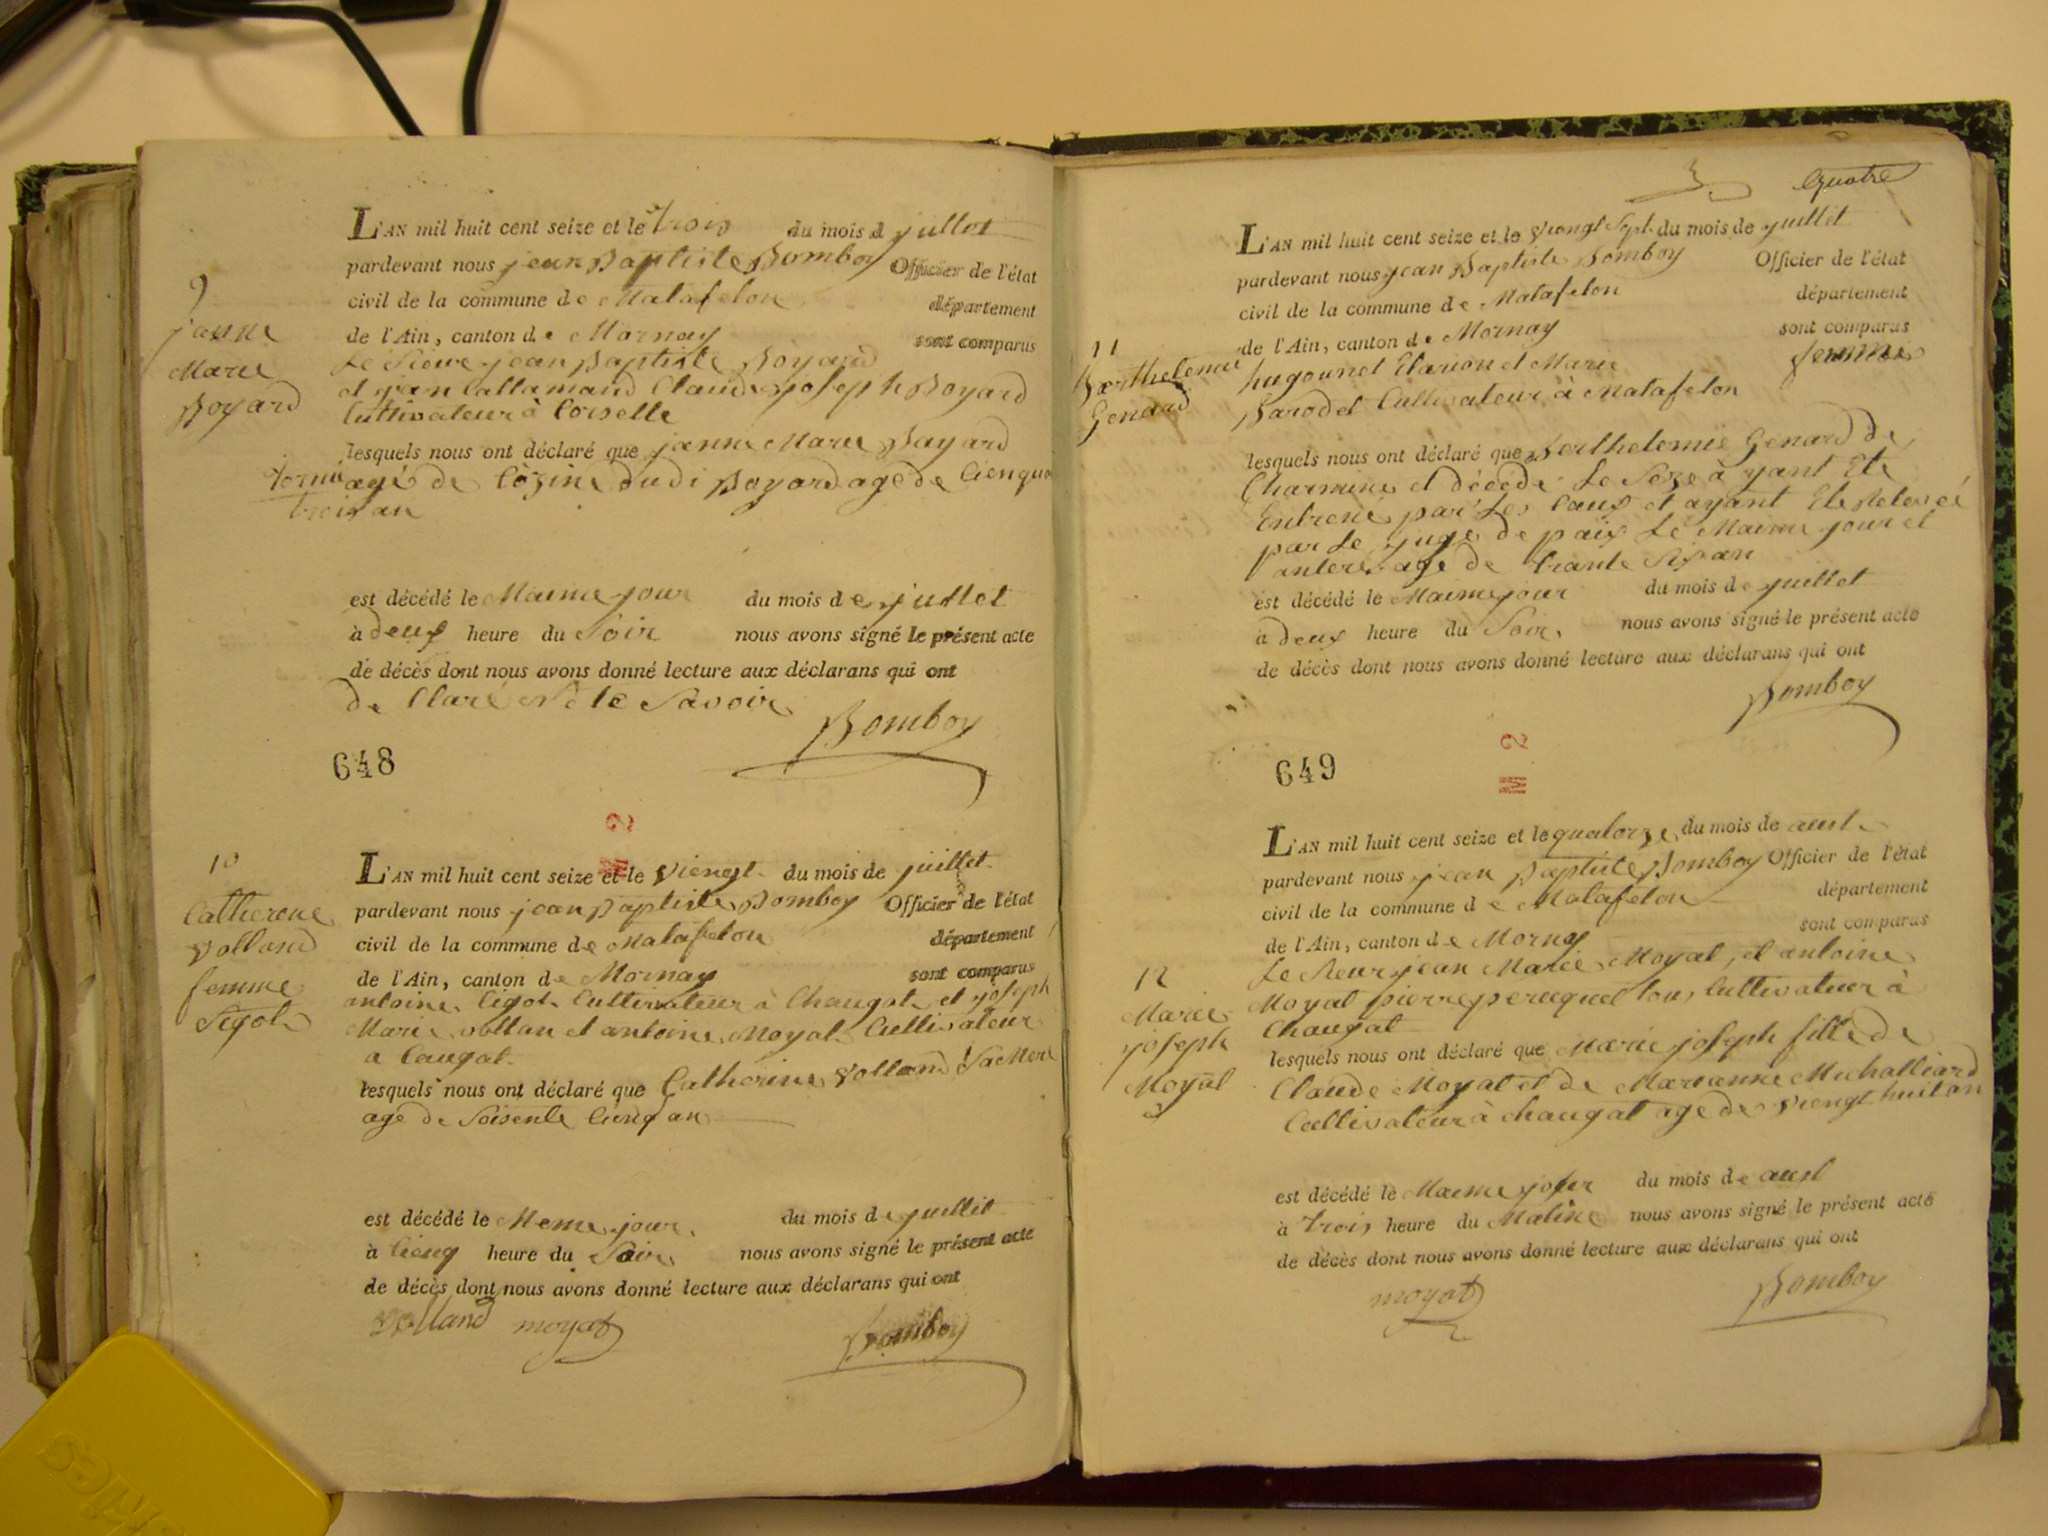 9
janne
Marie
Boyard
L'AN mil huit cent seize et le trois du mois d juillet
pardevant nous jean Baptiste Bomboy Officier de l'état
civil de la commune de Matafelon département
de l'Ain, canton de Mornay sont comparus
Le Sieur jean Baptiste Boyard
et jean Callamand Claude joseph Boyard
Cultivateur à Corselle
lesquels nous ont déclaré que janne Marie Bayard
agé de dudi Boyard age de Cienquante
trois an
est décédé le Maime jour du mois de juillet
à deux heure du Soir nous avons signé le présent acte
de décès dont nous avons donné lecture aux déclarans qui ont
de Claré Né le Savoir
Bomboy
648
10
Catherene
volland
femme
Sigot
L'AN mil huit cent seize et le viengt du mois de juillet
pardevant nous jean Baptiste Bomboy Officier de l'état
civil de la commune de Matafelon département
de l'Ain, canton de Mornay sont comparus
antoine Cigot Cultivateur à Chaugat et joseph
Marie vollan et antoine Moyat Cultivateur
a Caugat
lesquels nous ont déclaré que Catherine volland Sa Mere
age de Soisente Cienq an
est décédé le Meme jour du mois de juillet
à Cienq heure du Soir nous avons signé le présent acte
de décès dont nous avons donné lecture aux déclarans qui ont
volland moyat Bomboy
quatre
11
Barthelemie
Genard
L'AN mil huit cent seize et le viengt Sept du mois de juillet
pardevant nous jean Baptiste Bomboy Officier de l'état
civil de la commune de Matafelon département
de l'Ain, canton de Mornay sont comparus
hugounet Clarion et Marie
Barodet Cultivateur à Matafelon
lesquels nous ont déclaré que Berthelemie Genard de
Charmine et décédé Le Seze à yant Ete
Entrené par Les Eaux et ayant Ete Relevé
par Le juge de paix Le Maime jour et
anteré age de trante Six an
est décédé le Maime jour du mois de juillet
à Deux heure du Soir nous avons signé le présent acte
de décès dont nous avons donné lecture aux déclarans qui ont
Bomboy
649
12
Marie
joseph
Moyat
L'AN mil huit cent seize et le quatorze du mois de aust
pardevant nous jean Baptiste Bomboy Officier de l'état
civil de la commune de Matafelon département
de l'Ain, canton de Mornay sont comparus
Le Sieur jean Marie Moyat, et antoine
Moyat pierre perucquet tous Cultivateur à
Chaugat
lesquels nous ont déclaré que Marie joseph fille de
Claude Moyat et de Marianne Michalliard
Cultivateur à chaugat age de viengt huit an
est décédé le Maime jour du mois de aust
à trois heure du Matine nous avons signé le présent acte
de décès dont nous avons donné lecture aux déclarans qui ont
moyat Bomboy